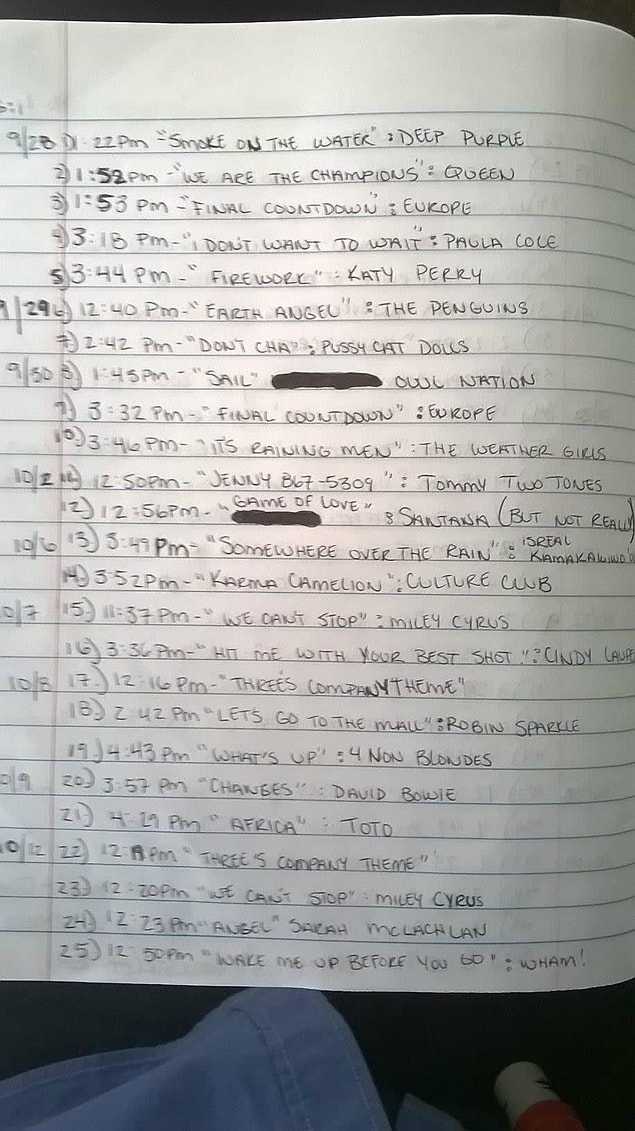 9/28 1) 1:22 Pm - "SMOKE ON THE WATER" : DEEP PURPLE
2) 1:52 pm - "WE ARE THE CHAMPIONS" : QUEEN
3) 1:53 pm - "FINAL COUNTDOWN" : EUROPE
4) 3:18 Pm - "I DON'T WANT TO WAIT" : PAULA COLE
5) 3:44 PM - "FIREWORK" : KATY PERRY
9/29 6) 12:40 Pm - "EARTH ANGEL" : THE PENGUINS
7) 2:42 Pm - "DON'T CHA" : PUSSY CAT DOLLS
9/30 8) 1:43pm - "SAIL" OWL NATION
9) 3:32 PM - "FINAL COUNTDOWN" : EUROPE
10) 3:46 PM - "IT'S RAINING MEN" : THE WEATHER GIRLS
10/2 11) 12:50Pm - "JENNY 867-5309" : TOMMY TWO TONES
12) 12:56Pm - "GAME OF LOVE" : SANTANA (BUT NOT REALLY)
10/6 13) 3:49 Pm - "SOMEWHERE OVER THE RAIN" : ISREAL
14) 3:52Pm - "KARMA CAMELION" : CULTURE CLUB
0/7 15) 11:37 PM - "WE CAN'T STOP" : MILEY CYRUS
16) 3:36 Pm - "HIT ME WITH YOUR BEST SHOT" : CINDY LAUPE
10/8 17) 12:16 Pm - "THREE'S COMPANY THEME"
18) 2:42 PM "LET'S GO TO THE MALL" : ROBIN SPARKLE
19) 4:43 Pm "WHAT'S UP" : 4 NON BLONDES
0/9 20) 3:57 Pm "CHANGES" : DAVID BOWIE
21) 4:29 PM "AFRICA" : TOTO
0/12 22) "THREE'S COMPANY THEME"
23) 12:20pm "WE CAN'T STOP" : MILEY CYRUS
24) 12:23 Pm "ANGEL" SARAH MCLACHLAN
25) 12:50 Pm "WAKE ME UP BEFORE YOU GO" : WHAM!